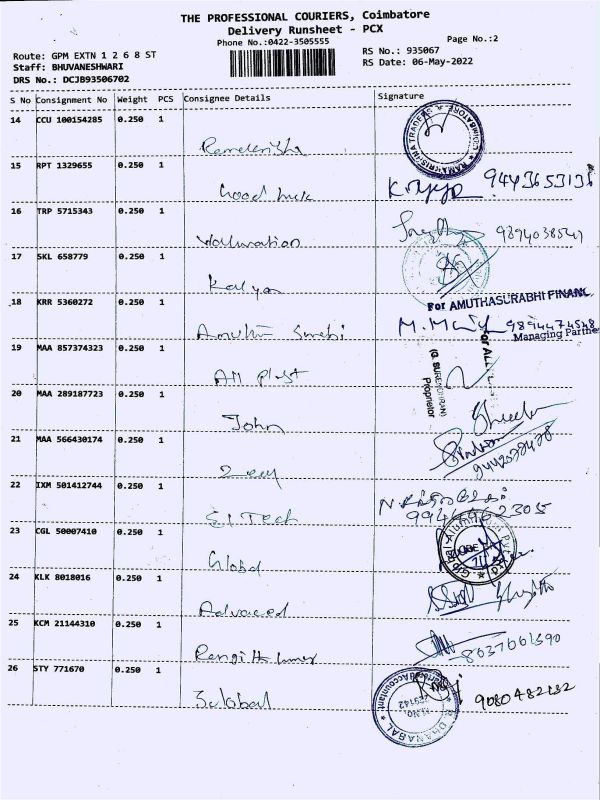 THE PROFESSIONAL COURIERS, Coimbatore
Delivery Runsheet - PCX
Phone No.:0422-3505555
Page No.:2
Route: GPM EXTN 1 2 6 8 ST
Staff: BHUVANESHWARI
DRS No.: DCJB93506702
RS No.: 935067
RS Date: 06-May-2022
S No Consignment No Weight PCS Consignee Details Signature
14 CCU 100154285 0.250 1
RAMAKRISHNA TRADERS ★ COIMBATORE
15 RPT 1329655 0.250 1
Good luck
9443653135
16 TRP 5715343 0.250 1
9894038547
17 SKL 658779 0.250 1
Kalyan
18 KRR 5360272 0.250 1
For AMUTHASURABHI FINANC
9894474548
Managing Partne
19 MAA 857374323 0.250 1
All plast
For ALL
(G. SURENDHRAN)
Proprietor
20 MAA 289187723 0.250 1
John
21 MAA 566430174 0.250 1
22 IXM 501412744 0.250 1
E.I.Tech
23 CGL 50007410 0.250 1
Global
24 KLK 8018016 0.250 1
Advanced
25 KCM 21144310 0.250 1
Rengith kumar
8037061590
26 STY 771670 0.250 1
DHANABAL
Chartered Accountant